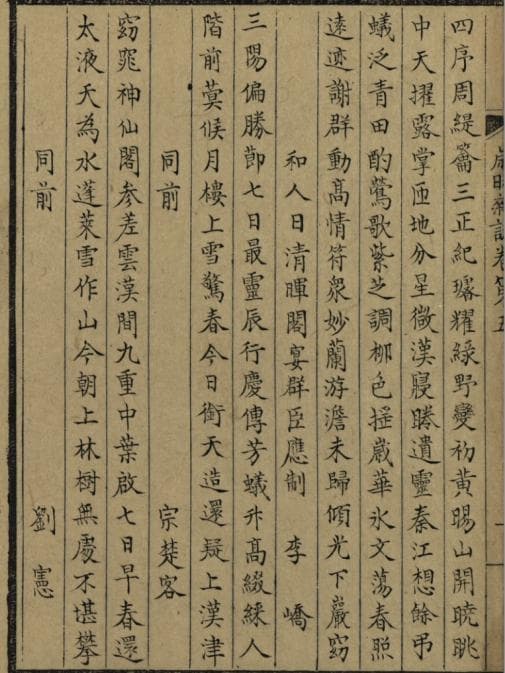 歲時雜詠卷第五
四序周緹籥三正紀璿耀綠野變初黃暘山開曉眺
中天擢露掌匝地分星徼漢寢睠遺靈秦江想餘弔
蟻泛青田酌鶯歌紫芝調柳色搖歲華氷文蕩春照
遠迹謝群動高情符衆妙蘭游澹未歸傾光下巖窈
和人日清暉閣宴群臣應制　李嶠
三陽偏勝節七日最靈辰行慶傳芳蟻升高綴綵人
階前蓂候月樓上雪驚春今日銜天造還疑上漢津
同前　宗楚客
窈窕神仙閣參差雲漢間九重中葉啟七日早春還
太液天為水蓬萊雪作山今朝上林樹無處不堪攀
同前　劉憲